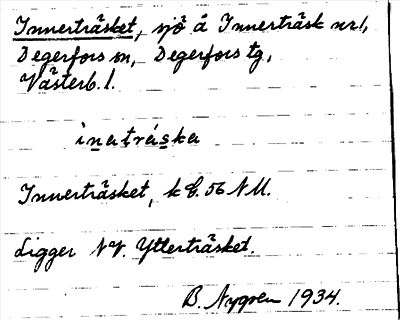 Innerträsket, sjö å Innerträsk nr 1,
Degerfors sn, Degerfors tg,
Västerb. l.
inatráska
Innerträsket, k E. 56 NM.
Ligger NV. Ytterträsket.
B. Nygren 1934.